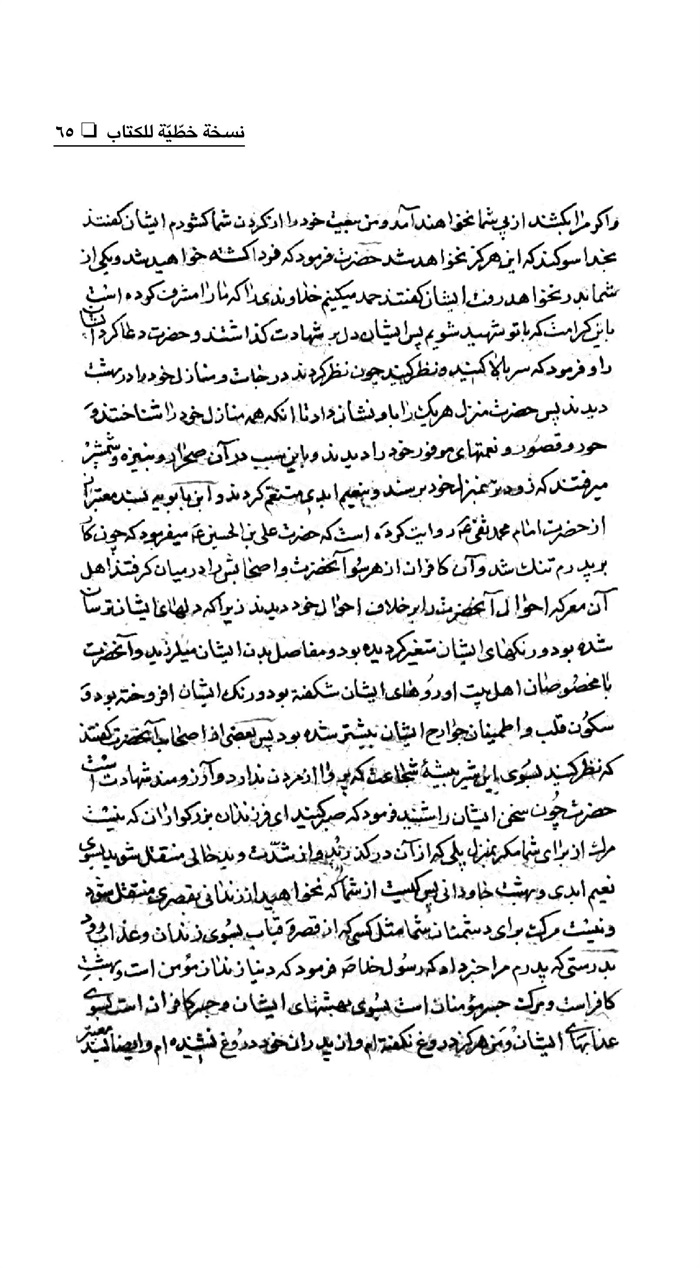 نسخة خطّيّة للكتاب ❏ ٦٥
واکر مرا بکشند از پی شما نخواهند آمد و من بیعت خود را از کردن شما کشودم ایشان کفتند
بخدا سوکند که این هرکز نخواهد شد حضرت فرمود که فردا کشته خواهید شد و یکی از
شما بدر نخواهد رفت ایشان کفتند حمد میکنیم خداوندی را که ما را مشرف کرده است
باین کرامت که با تو شهید شویم پس ایشان دل بر شهادت کذاشتند و حضرت دعا کرد ایشان
را و فرمود که سر بالا کنید و نظر کنید چون نظر کردند درجات و منازل خود را در بهشت
دیدند پس حضرت منزل هر یک را باو نشان داد تا انکه همه منازل خود را شناختند و
حور و قصور و نعمتهای موفور خود را دیدند و باین سبب در آن صحرا رو بنیزه و شمشیر
میرفتند که زودتر بمنزل خود برسند و بنعیم ابدی متنعم کردند و ابن بابویه بسند معتبر از
از حضرت امام محمد تقی ع روایت کرده است که حضرت علی بن الحسین ع میفرمود که چون کار
بر پدرم تنک شد و آن کافران از هر سو آنحضرت و اصحابش را در میان کرفتند اهل
آن معرکه احوال آنحضرت را بر خلاف احوال خود دیدند زیرا که دلهای ایشان ترسان
شده بود و رنکهای ایشان متغیر کردیده بود و مفاصل بدن ایشان میلرزید و آنحضرت
با مخصوصان اهل بیت او روهای ایشان شکفته بود و رنک ایشان افروخته بود و
سکون قلب و اطمینان جوارح ایشان بیشتر شده بود پس بعضی از اصحاب آنحضرت کفتند
که نظر کنید بسوی این شیر بیشهٔ شجاعت که پروا از مردن ندارد و آرزومند شهادت است
حضرت چون سخن ایشان را شنید فرمود که صبر کنید ای فرزندان بزرکواران که نیست
مرک از برای شما مکر بمنزل پلی که از آن درکذرید و از شدت و بدحالی منتقل شوید بسوی
نعیم ابدی و بهشت جاودانی پس کیست از شما که نخواهید از زندانی بقصری منتقل شود
و نیست مرک برای دشمنان شما مثل کسی که از قصر و قباب بسوی زندان و عذاب رود
بدرستی که پدرم مرا خبر داد که رسول خدا ص فرمود که دنیا زندان مؤمن است و بهشت
کافر است و مرک جسر مؤمنان است بسوی بهشتهای ایشان و جسر کافران است بسوی
عذابهای ایشان و من هرکز دروغ نکفته ام و از پدران خود دروغ نشنیده ام و ایضا بسند معتبر